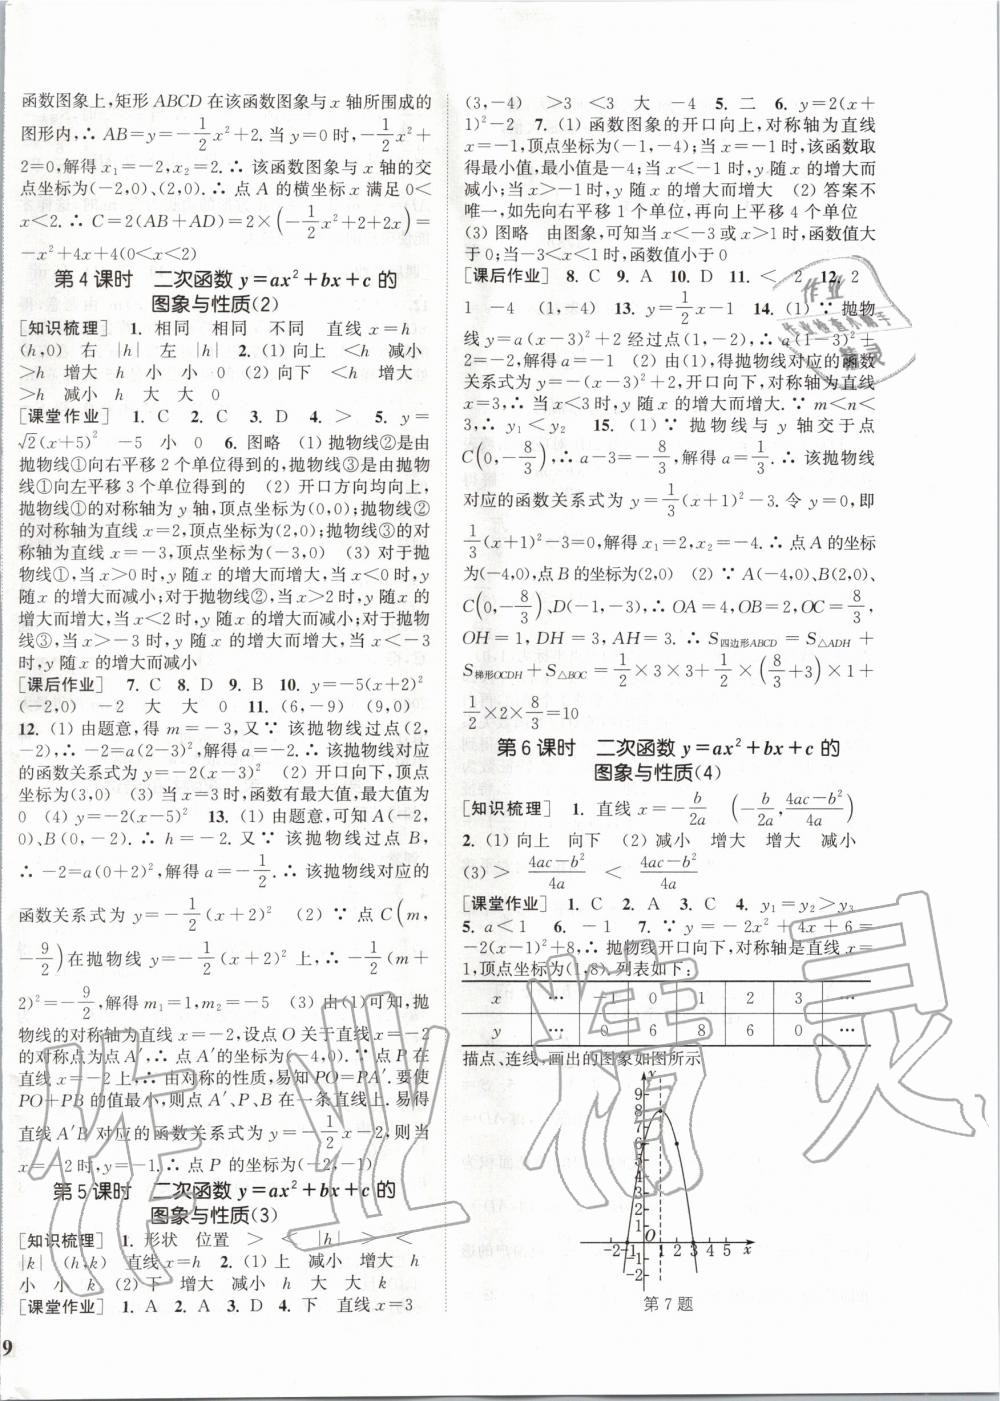 函数图象上,矩形 ABCD 在该函数图象与 x 轴所围成的
图形内,∴ AB=y=-1/2x²+2.当 y=0 时,-1/2x²+
2=0,解得 x₁=-2,x₂=2.∴ 该函数图象与 x 轴的交
点坐标为(-2,0)、(2,0).∴ 点 A 的横坐标 x 满足 0<
x<2.∴ C=2(AB+AD)=2×(-1/2x²+2+2x)=
-x²+4x+4(0<x<2)
第 4 课时 二次函数 y=ax²+bx+c 的
图象与性质(2)
[知识梳理] 1. 相同 相同 不同 直线 x=h
(h,0) 右 |h| 左 |h| 2. (1) 向上 <h 减小
>h 增大 h 小 小 0 (2) 向下 <h 增大
>h 减小 h 大 大 0
[课堂作业] 1. C 2. C 3. D 4. > 5. y=
√2(x+5)² -5 小 0 6. 图略 (1) 抛物线②是由
抛物线①向右平移 2 个单位得到的;抛物线③是由抛物
线①向左平移 3 个单位得到的 (2) 开口方向均向上,
抛物线①的对称轴为 y 轴,顶点坐标为(0,0);抛物线②
的对称轴为直线 x=2,顶点坐标为(2,0);抛物线③的对
称轴为直线 x=-3,顶点坐标为(-3,0) (3) 对于抛
物线①,当 x>0 时,y 随 x 的增大而增大,当 x<0 时,y
随 x 的增大而减小;对于抛物线②,当 x>2 时,y 随 x 的
增大而增大,当 x<2 时,y 随 x 的增大而减小;对于抛物
线③,当 x>-3 时,y 随 x 的增大而增大,当 x<-3
时,y 随 x 的增大而减小
[课后作业] 7. C 8. D 9. B 10. y=-5(x+2)²
(-2,0) -2 大 大 0 11. (6,-9) (9,0)
12. (1) 由题意,得 m=-3,又∵ 该抛物线过点(2,
-2),∴ -2=a(2-3)²,解得 a=-2.∴ 该抛物线对应
的函数关系式为 y=-2(x-3)² (2) 开口向下,顶点
坐标为(3,0) (3) 当 x=3 时,函数有最大值,最大值为
0 (4) y=-2(x-5)² 13. (1) 由题意,可知 A(-2,
0)、B(0,-2).∴ h=-2. 又∵ 该抛物线过点 B,
∴ -2=a(0+2)²,解得 a=-1/2.∴ 该抛物线对应的
函数关系式为 y=-1/2(x+2)² (2) ∵ 点 C(m,
-9/2)在抛物线 y=-1/2(x+2)² 上,∴ -1/2(m+
2)²=-9/2,解得 m₁=1,m₂=-5 (3) 由(1)可知,抛
物线的对称轴为直线 x=-2,设点 O 关于直线 x=-2
的对称点为点 A′,∴ 点 A′的坐标为(-4,0).∵ 点 P 在
直线 x=-2 上,∴ 由对称的性质,易知 PO=PA′.要使
PO+PB 的值最小,则点 A′、P、B 在一条直线上.易得
直线 A′B 对应的函数关系式为 y=-1/2x-2,则当
x=-2 时,y=-1.∴ 点 P 的坐标为(-2,-1)
第 5 课时 二次函数 y=ax²+bx+c 的
图象与性质(3)
[知识梳理] 1. 形状 位置 > < |h| > <
|k| (h,k) 直线 x=h 2. (1) 上 减小 增大 h
小 小 k (2) 下 增大 减小 h 大 大 k
[课堂作业] 1. A 2. A 3. D 4. 下 直线 x=3
9
(3,-4) >3 <3 大 -4 5. 二 6. y=2(x+
1)²-2 7. (1) 函数图象的开口向上,对称轴为直线
x=-1,顶点坐标为(-1,-4);当 x=-1 时,该函数取
得最小值,最小值是-4;当 x<-1 时,y 随 x 的增大而
减小;当 x>-1 时,y 随 x 的增大而增大 (2) 答案不
唯一,如先向右平移 1 个单位,再向上平移 4 个单位
(3) 图略 由图象,可知当 x<-3 或 x>1 时,函数值大
于 0;当-3<x<1 时,函数值小于 0
[课后作业] 8. C 9. A 10. D 11. < 2 12. 2
1 -4 (1,-4) 13. y=1/2x-1 14. (1) ∵ 抛物
线 y=a(x-3)²+2 经过点(1,-2),∴ a(1-3)²+
2=-2,解得 a=-1 (2) 由(1),得抛物线对应的函数
关系式为 y=-(x-3)²+2,开口向下,对称轴为直线
x=3,∴ 当 x<3 时,y 随 x 的增大而增大.∵ m<n<
3,∴ y₁<y₂ 15. (1) ∵ 抛物线与 y 轴交于点
C(0,-8/3),∴ a-3=-8/3,解得 a=1/3.∴ 该抛物线
对应的函数关系式为 y=1/3(x+1)²-3.令 y=0,即
1/3(x+1)²-3=0,解得 x₁=2,x₂=-4.∴ 点 A 的坐标
为(-4,0),点 B 的坐标为(2,0) (2) ∵ A(-4,0)、B(2,0)、
C(0,-8/3)、D(-1,-3),∴ OA=4,OB=2,OC=8/3,
OH=1,DH=3,AH=3.∴ S四边形ABCD=S△ADH+
S梯形OCDH+S△BOC=1/2×3×3+1/2×(8/3+3)×1+
1/2×2×8/3=10
第 6 课时 二次函数 y=ax²+bx+c 的
图象与性质(4)
[知识梳理] 1. 直线 x=-b/2a (-b/2a,(4ac-b²)/4a)
2. (1) 向上 向下 (2) 减小 增大 增大 减小
(3) > (4ac-b²)/4a < (4ac-b²)/4a
[课堂作业] 1. C 2. A 3. C 4. y₁=y₂>y₃
5. a<1 6. -1 7. ∵ y=-2x²+4x+6=
-2(x-1)²+8,∴ 抛物线开口向下,对称轴是直线 x=
1,顶点坐标为(1,8).列表如下:
x … -1 0 1 2 3 …
y … 0 6 8 6 0 …
描点、连线,画出的图象如图所示
y
9
8
7
6
5
4
3
2
1
O
-2 -1 1 2 3 4 5 x
-1
-2
第 7 题
作业
作业检查小帮手
精灵
作业精灵